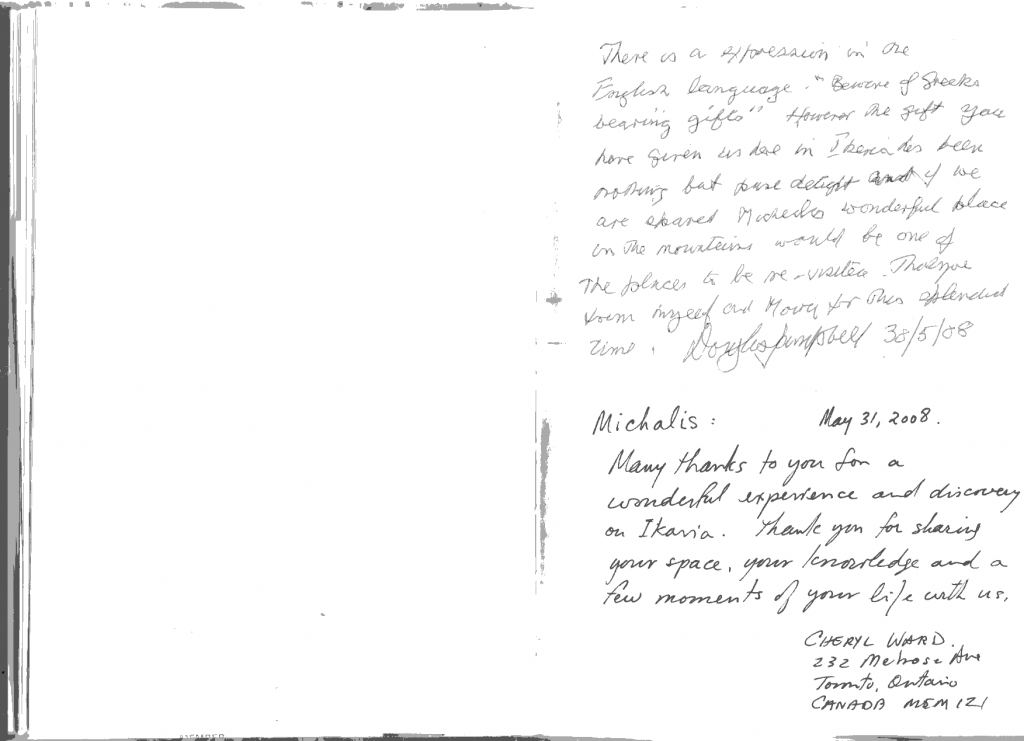 There is a expression in the
English language. "Beware of Greeks
bearing gifts" However the gift you
have given us here in Ikaria has been
nothing but pure delight and if we
are spared Michalis wonderful place
in the mountains would be one of
the places to be re-visited. Thankyou
from myself and for this splendid
time. Douglas Campbell 30/5/08
Michalis: May 31, 2008.
Many thanks to you for a
wonderful experience and discovery
on Ikaria. Thank you for sharing
your space, your knowledge and a
few moments of your life with us.
CHERYL WARD.
232 Melrose Ave
Toronto, Ontario
CANADA M5M 1Z1